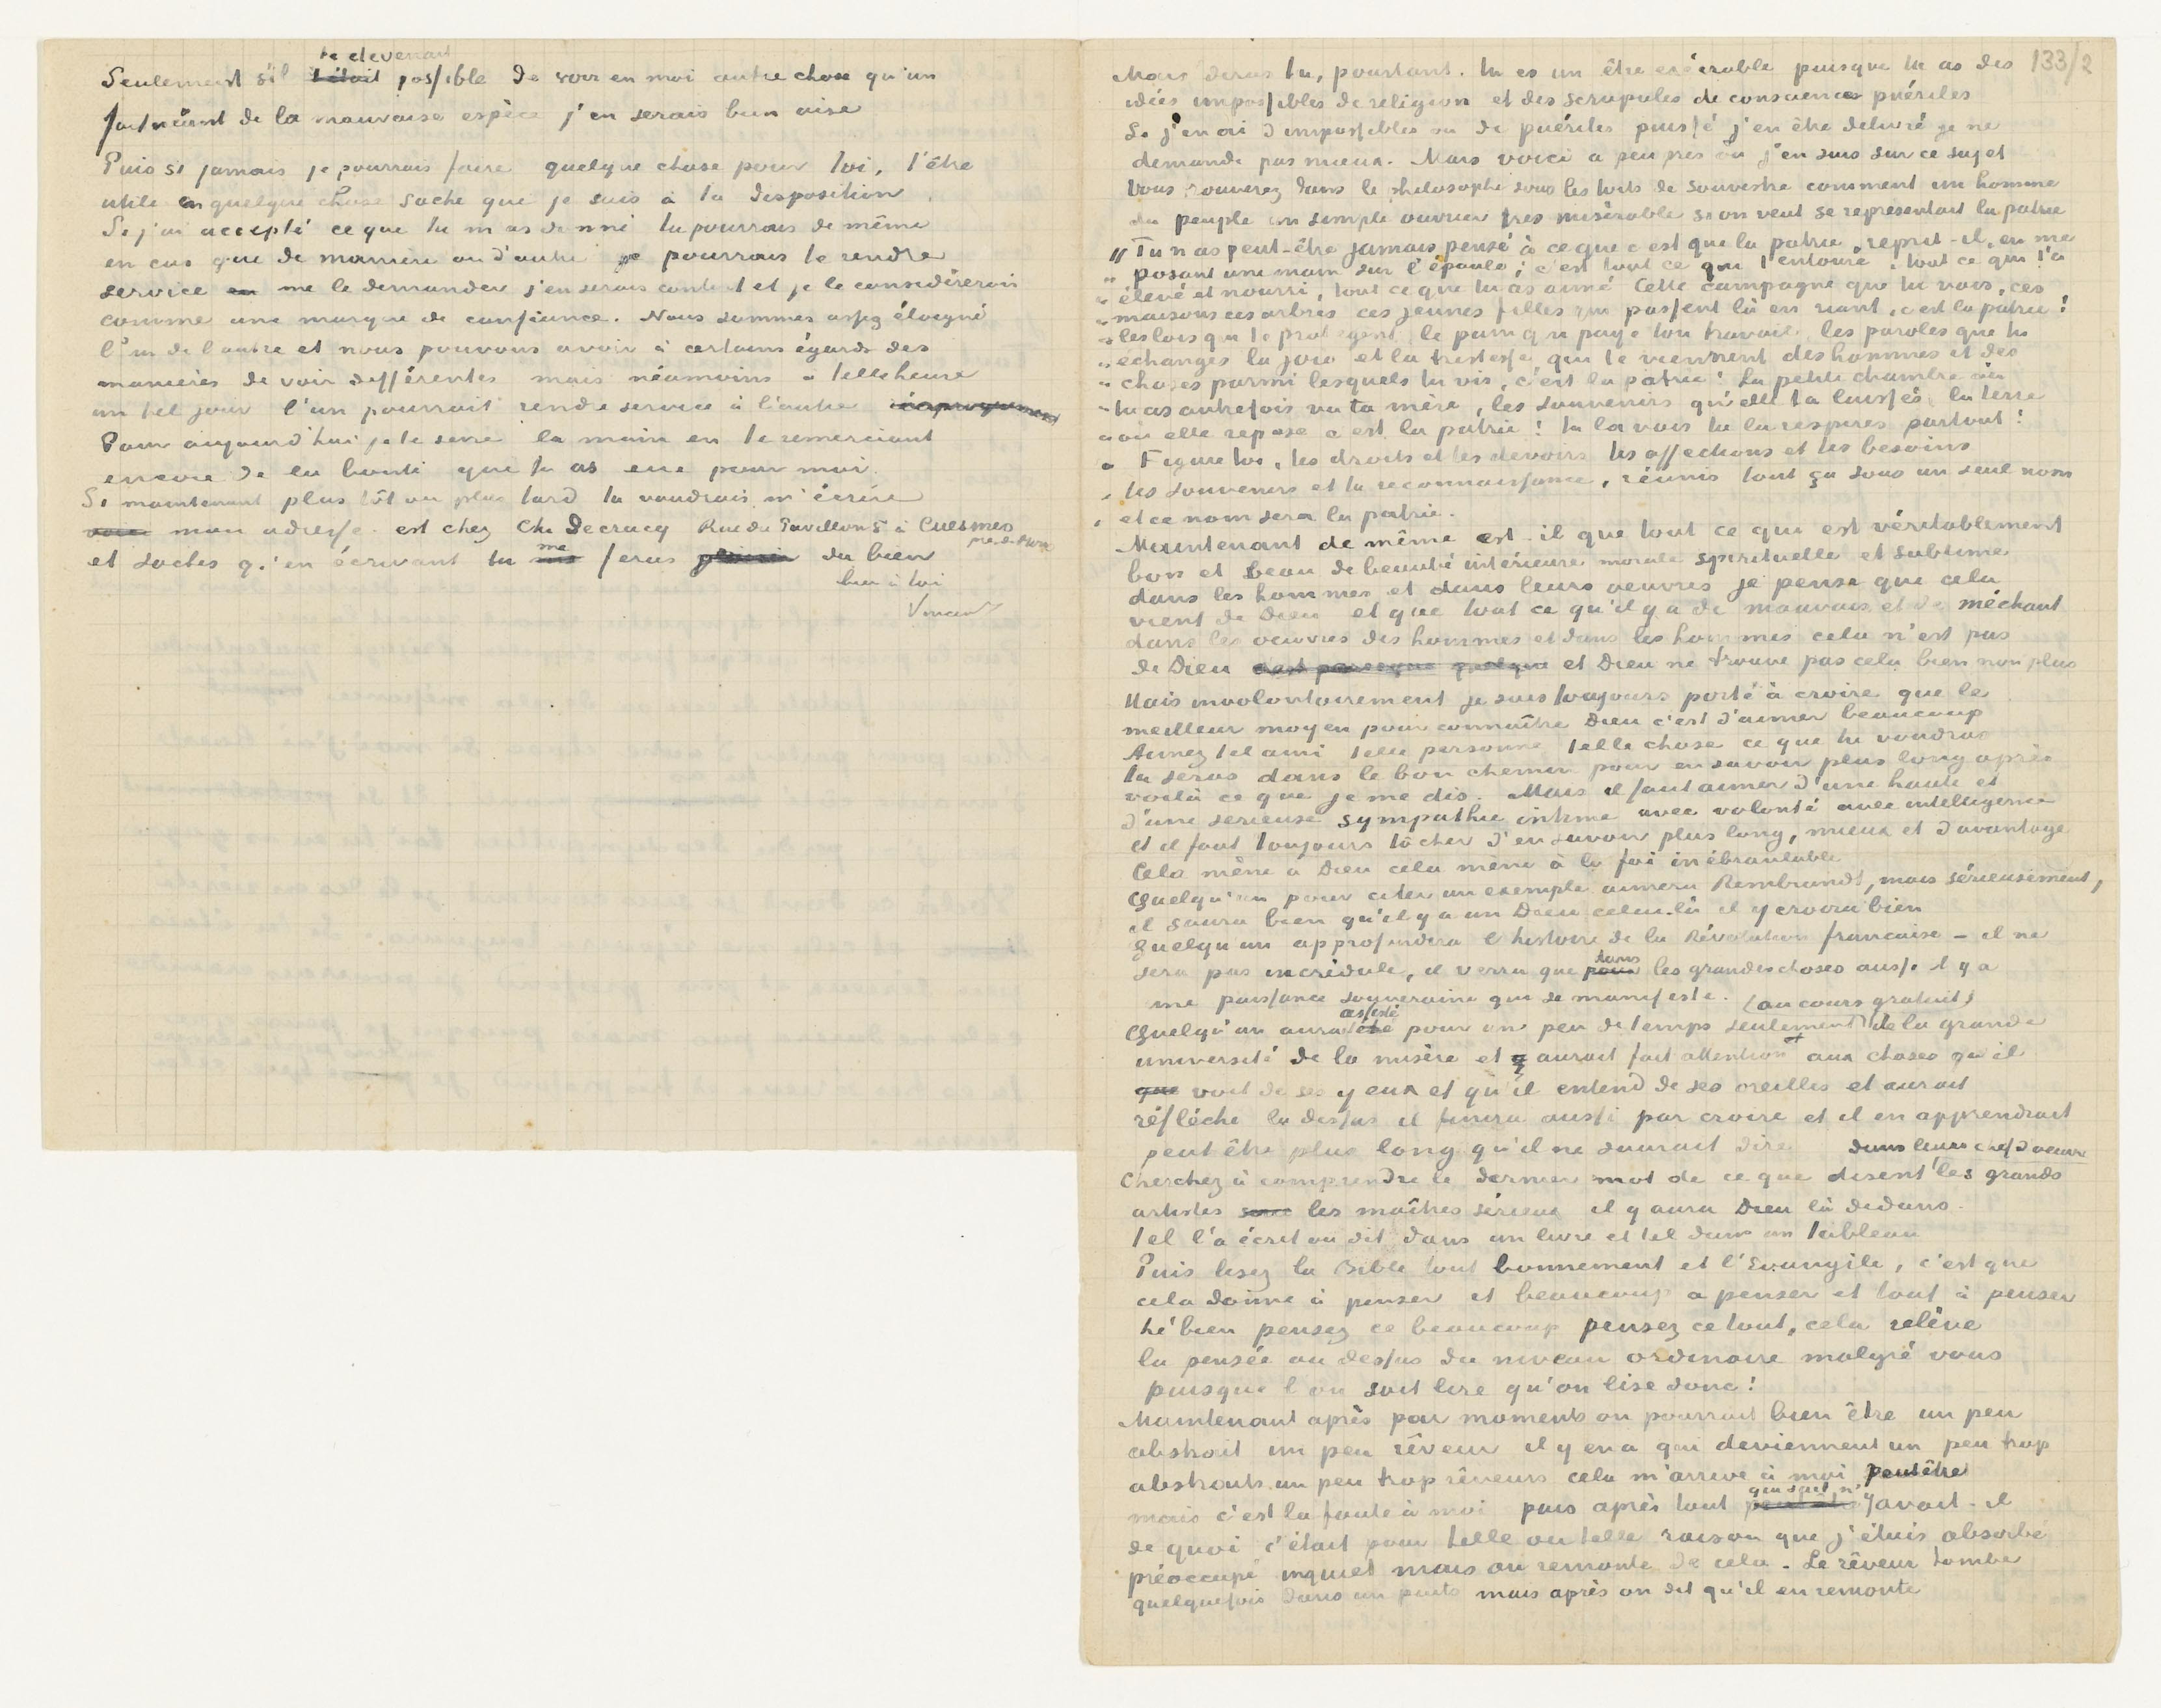 te devenait
Seulement s'il t'était possible de voir en moi autre chose qu'un
fainéant de la mauvaise espèce j'en serais bien aise
Puis si jamais je pourrais faire quelque chose pour toi, t'être
utile en quelque chose sache que je suis à ta disposition.
Si j'ai accepté ce que tu m'as donné tu pourrais de même
en cas que de maniere ou d'autre je pourrais te rendre
service en me le demander j'en serais content et je le considérerais
comme une marque de confiance. Nous sommes assez éloigné
l'un de l'autre et nous pouvons avoir à certains égards des
manières de voir différentes mais néamoins a telle heure
un tel jour l'un pourrait rendre service à l'autre
Pour aujourd'hui je te serre la main en te remerciant
encore de la bonté que tu as eue pour moi.
Si maintenant plus tôt ou plus tard tu voudrais m'écrire
mon adresse est chez Ch. Decrucq Rue du Pavillon 3 à Cuesmes
près de Mons
et saches qu'en écrivant tu me feras du bien
bien à toi
Vincent
133/2
Mais diras tu, pourtant. tu es un être exécrable puisque tu as des
idées impossibles de religion et des scrupules de conscience puériles
Si j'en ai d'impossibles ou de puériles puissé j'en être delivré je ne
demande pas mieux. Mais voici a peu près où j'en suis sur ce sujet
Vous trouverez dans le philosophe sous les toits de Souvestre comment un homme
du peuple un simple ouvrier très misérable si on veut se representait la patrie
„ Tu n'as peut-être jamais pensé à ce que c'est que la patrie, reprit-il, en me
„ posant une main sur l'épaule; c'est tout ce qui t'entoure, tout ce qui t'a
„ élevé et nourri, tout ce que tu as aimé Cette campagne que tu vois, ces
„ maisons ces arbres ces jeunes filles qui passent là en riant, c'est la patrie!
„ les lois qui te protègent, le pain qui paye ton travail, les paroles que tu
„ echanges la joie et la tristesse qui te viennent des hommes et des
„ choses parmi lesquels tu vis, c'est la patrie! La petite chambre où
„ tu as autrefois vu ta mère, les souvenirs qu'elle t'a laissés, la terre
„ où elle repose c'est la patrie! tu la vois tu la respires partout!
„ Figure toi, les droits et les devoirs les affections et les besoins
„ les souvenirs et la reconnaissance, réunis tout ça sous un seul nom
„ et ce nom sera la patrie.
Maintenant de même est-il que tout ce qui est véritablement
bon et beau de beauté intérieure morale spirituelle et sublime
dans les hommes et dans leurs oeuvres je pense que cela
vient de Dieu et que tout ce qu'il y a de mauvais et de méchant
dans les oeuvres des hommes et dans les hommes cela n'est pas
de Dieu et Dieu ne trouve pas cela bien non plus
Mais involontairement je suis toujours porté à croire que le
meilleur moyen pour connaître Dieu c'est d'aimer beaucoup
Aimez tel ami telle personne telle chose ce que tu voudras
tu seras dans le bon chemin pour en savoir plus long après
voilà ce que je me dis. Mais il faut aimer d'une haute et
d'une serieuse sympathie intime avec volonté avec intelligence
et il faut toujours tâcher d'en savoir plus long, mieux et davantage
Cela mène à Dieu cela mène à la foi inébranlable
Quelqu'un pour citer un exemple aimera Rembrandt, mais sérieusement,
il saura bien qu'il y a un Dieu celui-là il y croira bien
Quelqu'un approfondira l'histoire de la Révolution française – il ne
sera pas incrédule, il verra que pour dans les grandes choses aussi il y a
une puissance souveraine qui se manifeste.
(au cours gratuit)
Quelqu'un aurait été assisté pour un peu de temps seulement de la grande
université de la misère et aurait fait attention aux choses qu'il
que voit de ses yeux et qu'il entend de ses oreilles et aurait
réfléchi la dessus il finira aussi par croire et il en apprendrait
peut être plus long qu'il ne saurait dire.
dans leurs chefs d'oeuvre
Cherchez à comprendre le dernier mot de ce que disent les grands
artistes les maîtres sérieux il y aura Dieu là dedans.
Tel l'a écrit ou dit dans un livre et tel dans un tableau
Puis lisez la Bible tout bonnement et l'Evangile, c'est que
cela donne à penser et beaucoup a penser et tout à penser
hé bien pensez ce beaucoup pensez ce tout, cela relêve
la pensée au dessus du niveau ordinaire malgré vous
puisque l'on sait lire qu'on lise donc!
Maintenant après par moments on pourrait bien être un peu
abstrait un peu rêveur il y en a qui deviennent un peu trop
abstraits un peu trop rêveurs cela m'arrive à moi peutêtre
mais c'est la faute à moi puis après tout qui sait n'y avait-il
de quoi c'était pour telle ou telle raison que j'étais absorbé
préoccupé inquiet mais on remonte de cela. Le rêveur tombe
quelquefois dans un puits mais après on dit qu'il en remonte